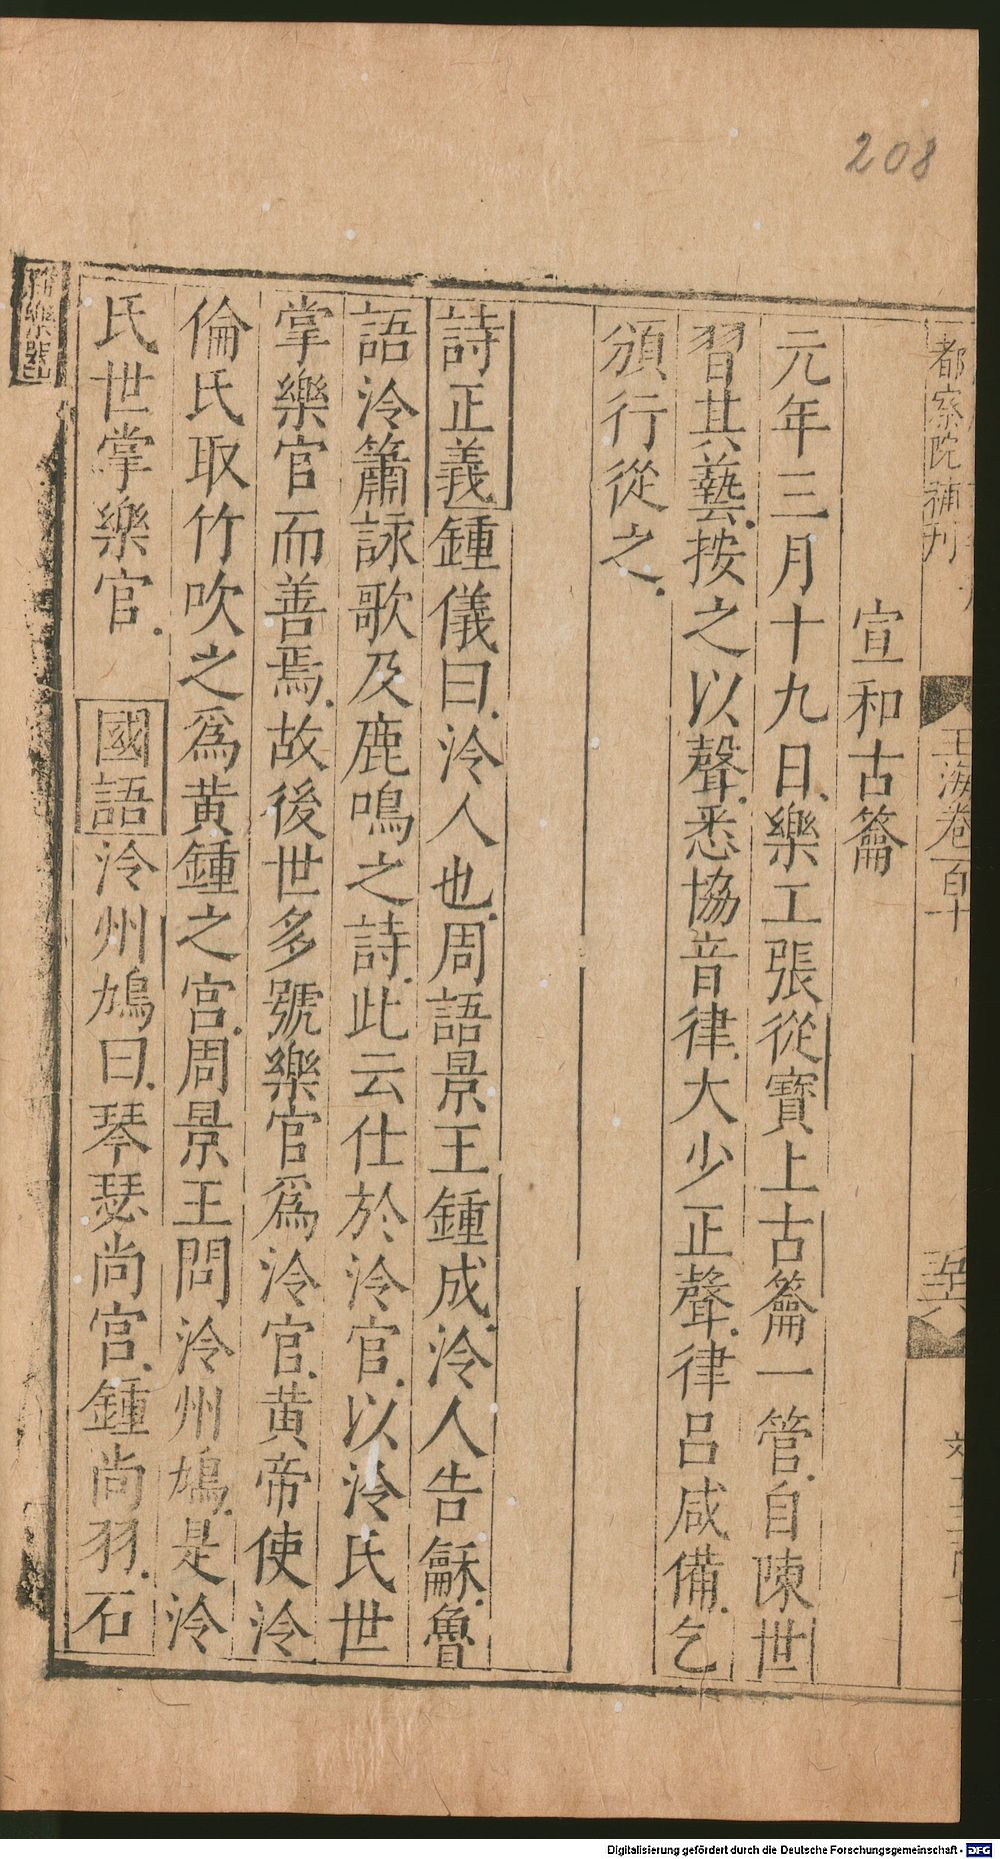 208
都察院補刊
玉海卷百十
宣和古籥
元年三月十九日樂工張從寶上古籥一管自陳世
習其藝按之以聲悉協音律大少正聲律呂咸備乞
頒行從之
詩正義鍾儀曰泠人也周語景王鍾成泠人告龢魯
語泠簫詠歌及鹿鳴之詩此云仕於泠官以泠氏世
掌樂官而善焉故後世多號樂官爲泠官黃帝使泠
倫氏取竹吹之爲黃鍾之宮周景王問泠州鳩是泠
氏世掌樂官 國語泠州鳩曰琴瑟尚宮鍾尚羽石
Digitalisierung gefördert durch die Deutsche Forschungsgemeinschaft - DFG